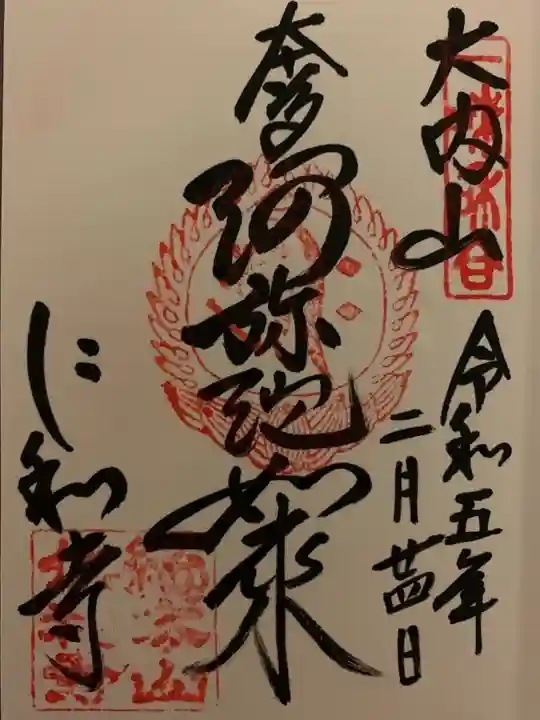 大内山
令和五年
二月廿四日
阿弥陀如来
仁和寺